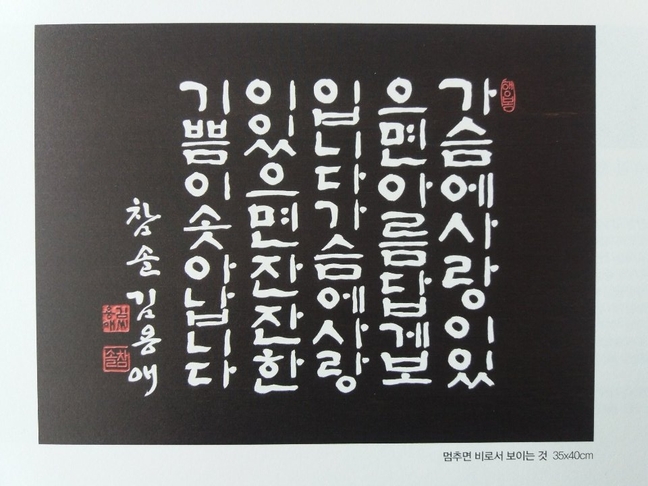 가슴에사랑이있
으면아름답게보
입니다가슴에사랑
이있으면잔잔한
기쁨이솟아납니다
참솔 김용애
참솔
멈추면 비로서 보이는 것 35x40cm